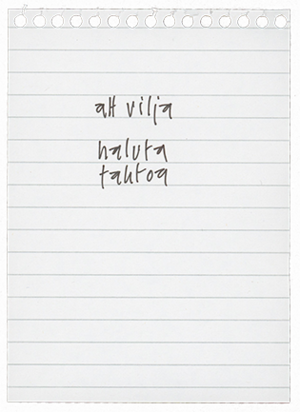 att vilja
haluta
tahtoa